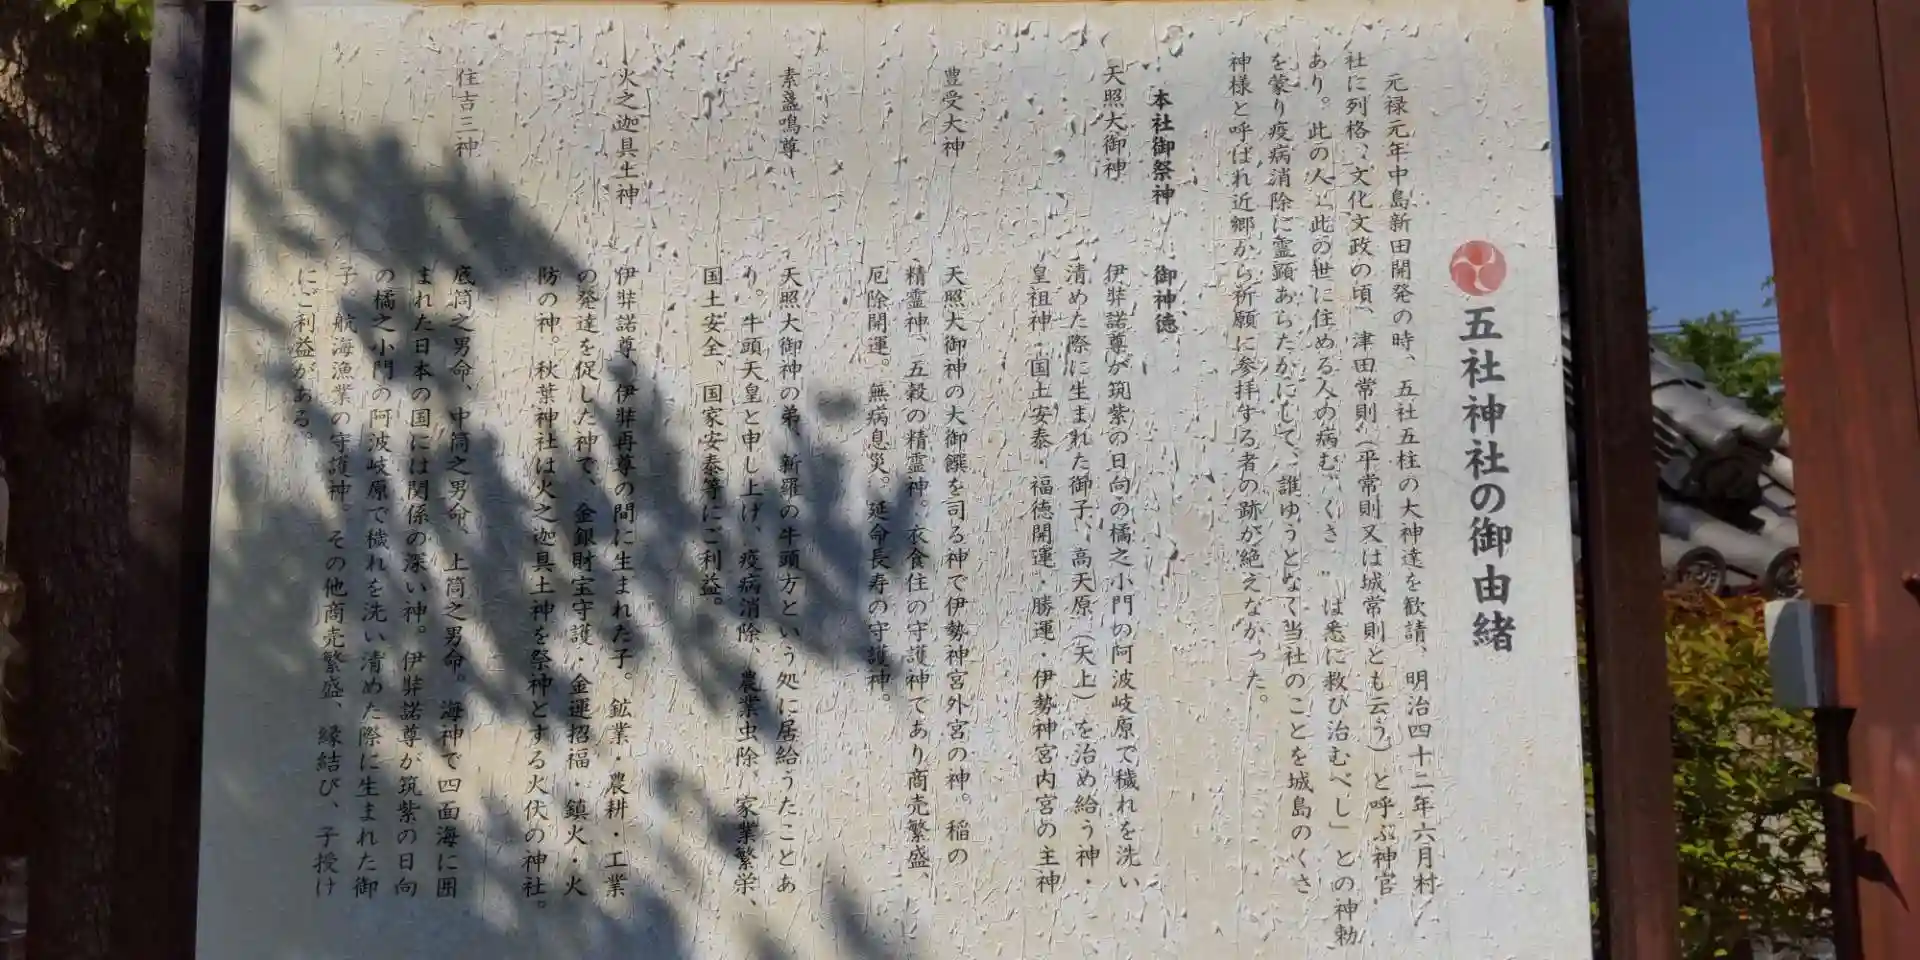 五社神社の御由緒
元禄元年中島新田開発の時、五社五柱の大神達を歓請、明治四十二年六月村
社に列格、文化文政の頃、津田常則(平常則又は城常則とも云う)と呼ぶ神官
あり。此の人、此の世に住める人の病む〝くさ〟は悉に救ひ治むべし」との神勅
を蒙り疫病消除に霊顕あらたかにして、誰ゆうとなく当社のことを城島のくさ
神様と呼ばれ近郷から祈願に参拝する者の跡が絶えなかった。
本社御祭神 御神徳
天照大御神 伊弉諾尊が筑紫の日向の橘之小門の阿波岐原で穢れを洗い
清めた際に生まれた御子、高天原(天上)を治め給う神・
皇祖神・国土安泰・福徳開運・勝運・伊勢神宮内宮の主神
豊受大神 天照大御神の大御饌を司る神で伊勢神宮外宮の神。稲の
精霊神、五穀の精霊神。衣食住の守護神であり商売繁盛、
厄除開運。無病息災。延命長寿の守護神。
素盞鳴尊 天照大御神の弟、新羅の牛頭方という処に居給うたことあ
り。牛頭天皇と申し上げ、疫病消除、農業虫除、家業繁栄、
国土安全、国家安泰等にご利益。
火之迦具土神 伊弉諾尊、伊弉再尊の間に生まれた子。鉱業・農耕・工業
の発達を促した神で、金銀財宝守護・金運招福・鎮火・火
防の神。秋葉神社は火之迦具土神を祭神とする火伏の神社。
住吉三神 底筒之男命、中筒之男命、上筒之男命。海神で四面海に囲
まれた日本の国には関係の深い神。伊弉諾尊が筑紫の日向
の橘之小門の阿波岐原で穢れを洗い清めた際に生まれた御
子。航海漁業の守護神。その他商売繁盛、縁結び、子授け
にご利益がある。